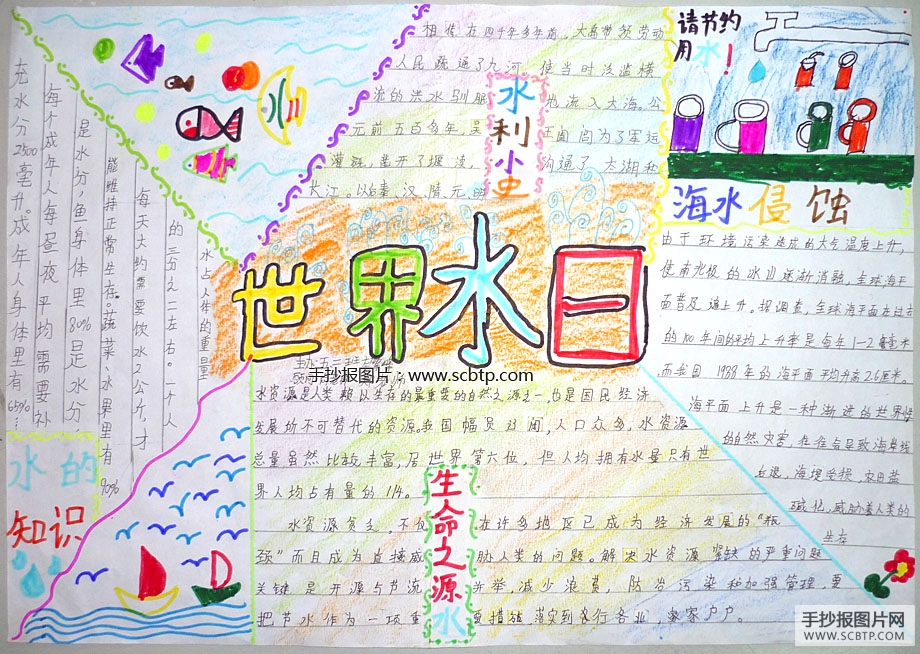 世界水日
手抄报图片：www.scbtp.com
水利小史
相传在四千年多年前，大禹带领劳动
人民疏通了九河，使当时泛滥横
流的洪水驯服地流入大海。公
元前五百多年，吴王阖闾为了军运
灌溉，凿开了堰渎，沟通了太湖和
长江。以后秦、汉、隋、元、明
请节约
用水！
海水侵蚀
由于环境污染造成的大气温度上升，
使南北极的冰川逐渐消融，全球海平
面普及遍上升。据调查，全球海平面在过去
的100年间的平均上升率是每年1－2毫米
而我国1988年的海平面平均升高2.6厘米。
海平面上升是一种渐进的世界性
的自然灾害，往往会导致海岸线
后退，海堤受损，农田盐
碱化，威胁着人类的
生存
水占人体的重量
的三分之二左右。一个人
每天大约需要饮水2公斤，才
能维持正常生存。蔬菜、水果里有90%
是水分，鱼身体里80%是水分
每个成年人每昼夜平均需要补
充水分2500毫升。成年人身体里有65%
水的
知识
生命之源水
水资源是人类赖以生存的最重要的自然之源之一，也是国民经济
发展所不可替代的资源。我国幅员辽阔，人口众多，水资源
总量虽然比较丰富，居世界第六位，但人均拥有水量只有世
界人均占有量的1/4。
水资源贫乏，不仅在许多地区已成为经济发展的“瓶
颈”而且成为直接威胁人类的问题。解决水资源紧缺的严重问题
关键是开源与节流并举，减少浪费，防治污染和加强管理，更
把节水作为一项重要措施落实到各行各业，家家户户。
手抄报图片网
WWW.SCBTP.COM